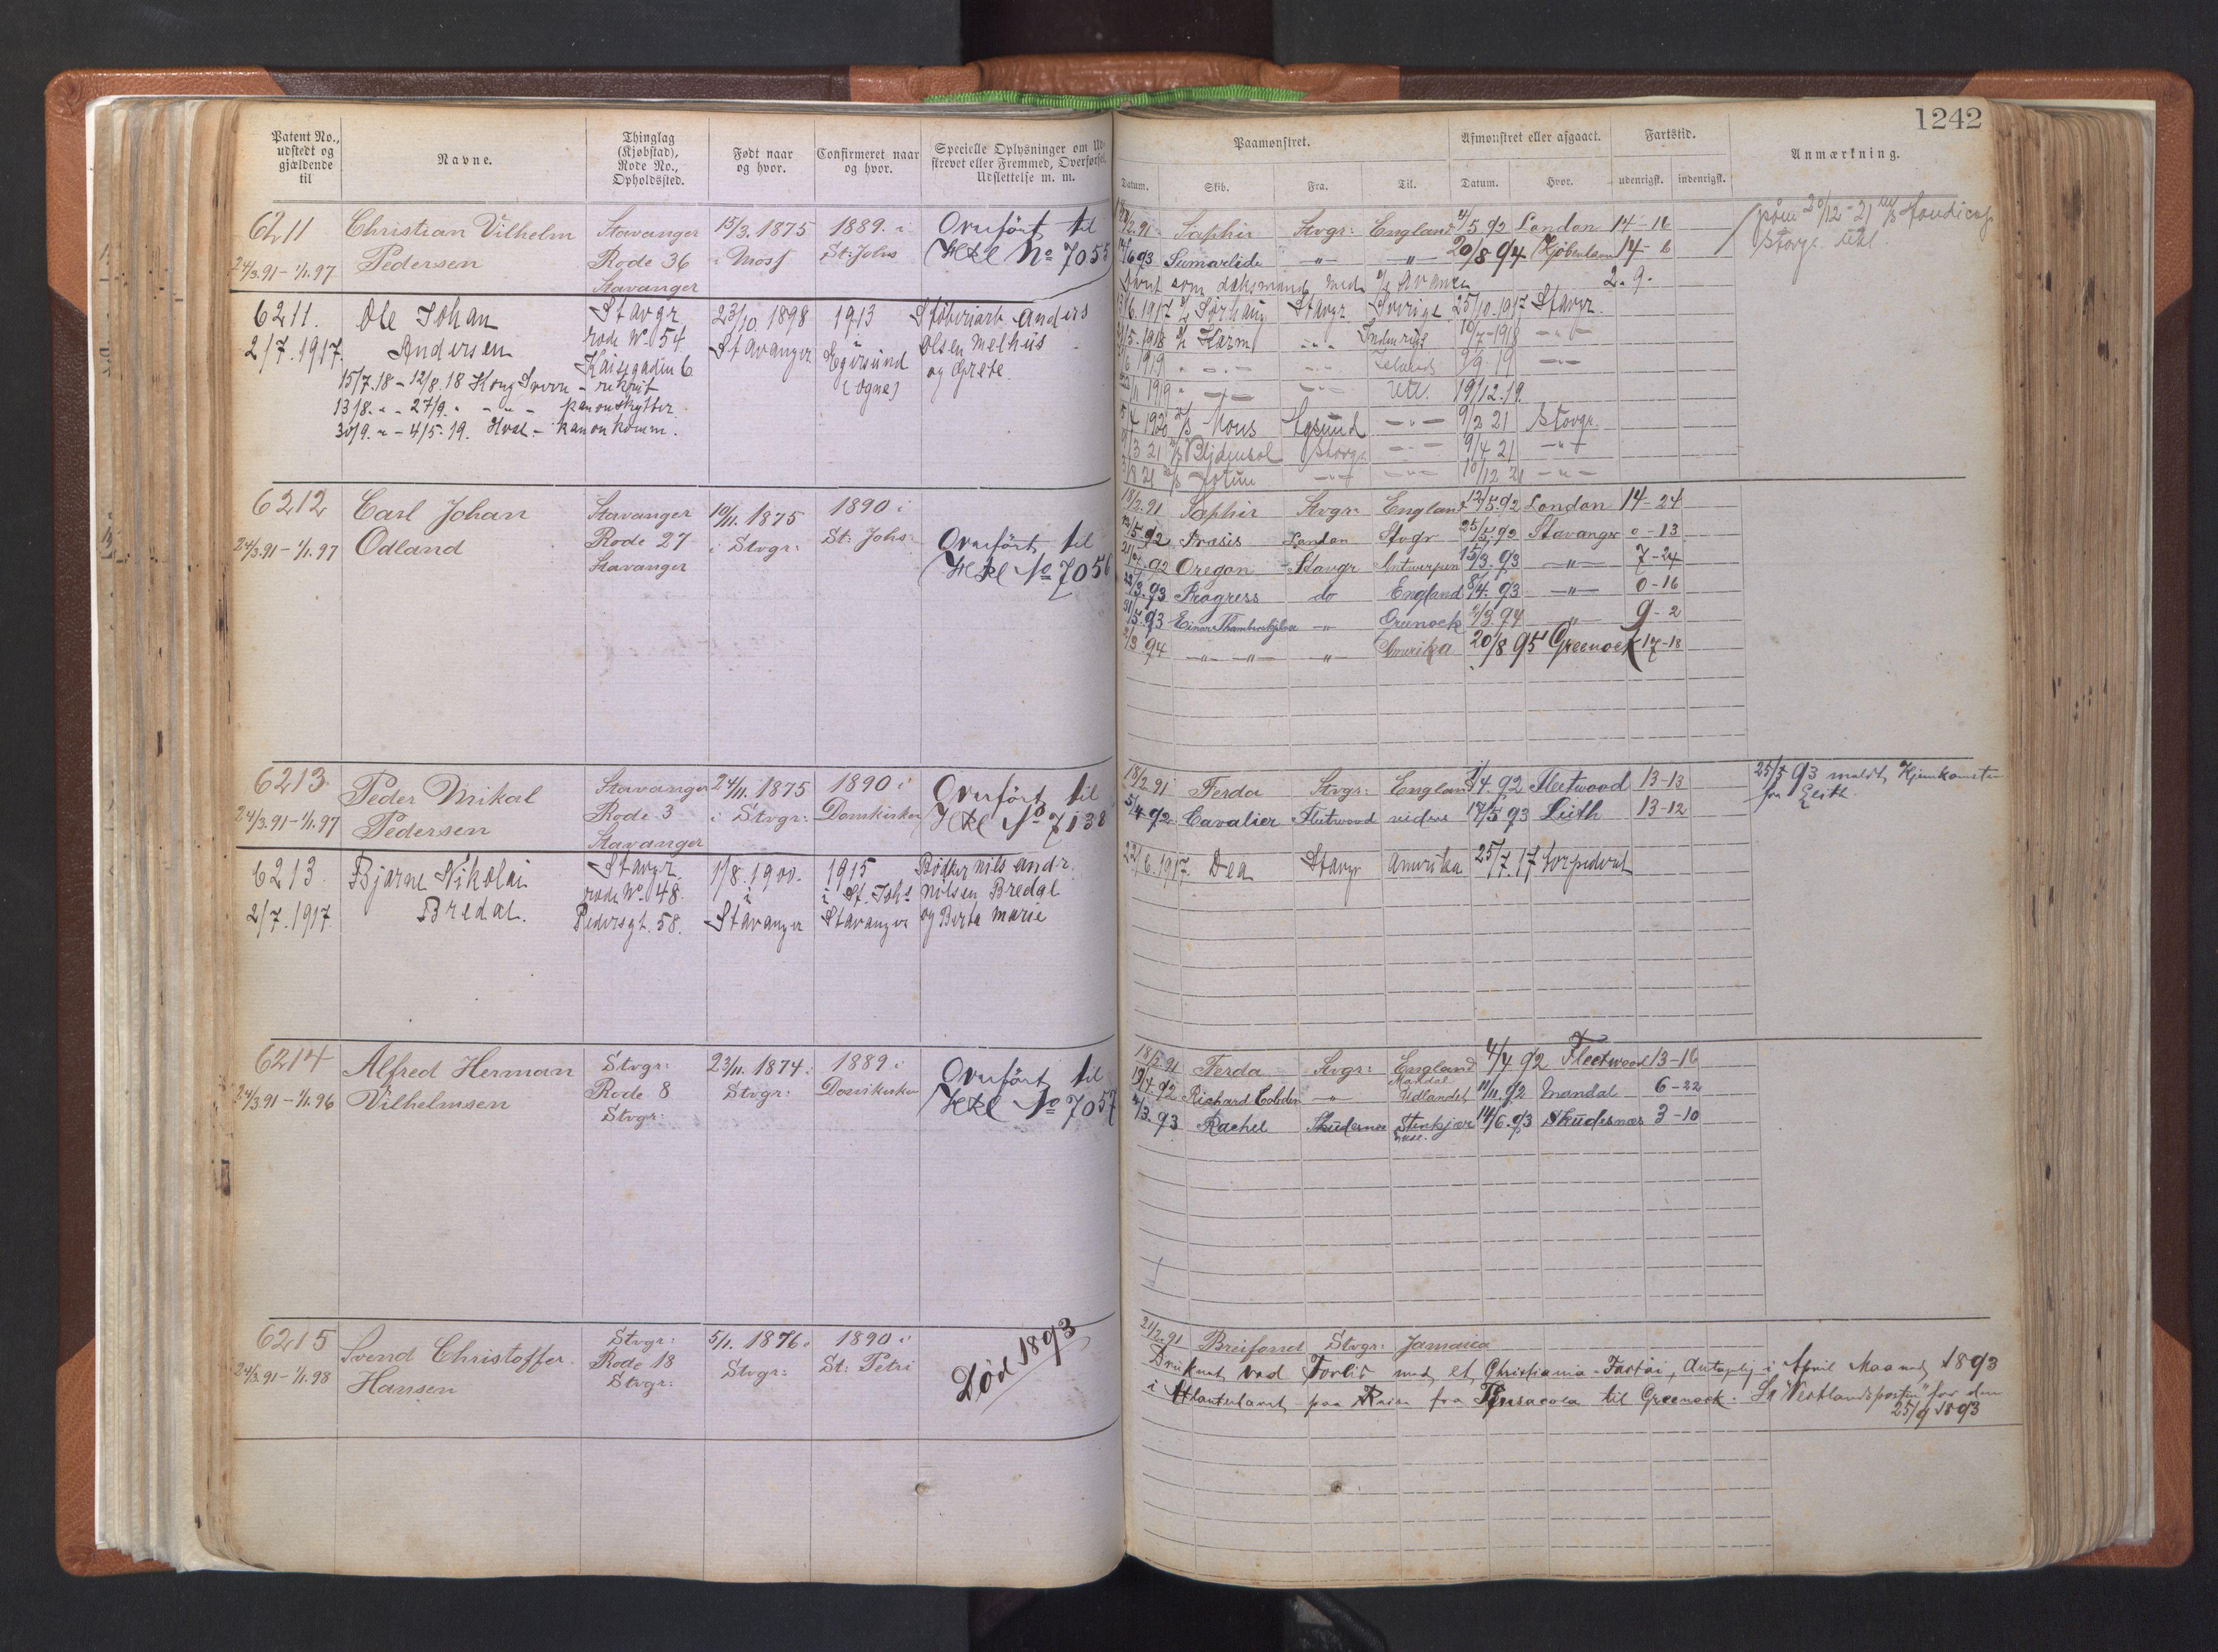 1242
Patent No., udstedt og gjældende til
Navne.
Thinglag (Kjøbstad), Rode No., Opholdssted.
Født naar og hvor.
Confirmeret naar og hvor.
Specielle Oplysninger om Ud-
strevet eller Fremmed, Overførsel,
Udslettelse m. m.
Paamønstret.
Afmønstret eller afgaaet.
Fartstid.
Anmærkning.
Datum. Skib. Fra. Til. Datum. Hvor. udenrigsk. indenrigsk.
6211 Christian Vilhelm Stavanger 15/3. 1875 1889. i Overført til
24/3.91 - 1/1.97 Pedersen Rode 36 i Moss St: Johs No 7055
Stavanger
6211. Ole Johan Stavgr 23/10 1898 1913 Støberiarb. Anders
2/7.1917. Andersen rode No 54 Stavanger Egersund Olsen Melhus
Kaisegaden 6 (Ogne) og Grete
15/7.18 - 12/8.18 Kong Sverre - rekrut
13/8. " - 27/9. " - " - kanonskytter
30/9. " - 4/5-19. Hval - kanonkomm.
6212 Carl Johan Stavanger 10/11. 1875 1890 i
24/3.91 - 1/1.97 Odland Rode 27 i Stvgr: St: Johs: Overført til
Stavanger No 7056
6213 Peder Mikal Stavanger 24/11. 1875 1890 i Overført til
24/3.91 - 1/1.97 Pedersen Rode 3 i Stvgr: Domkirken No 7138
Stavanger
6213 Bjarne Nikolai Stavgr. 1/8. 1900. 1915 Bødker Nils Andr.
2/7.1917. Bredal. rode No 48. i i St. Johs Nilsen Bredal
Pedersgt. 58. Stavanger Stavanger og Berta Marie
6214 Alfred Herman Stvgr: 23/11. 1874 i 1889 i Overført til
24/3.91 - 1/1.96 Vilhelmsen Rode 8 Stvgr: Domkirken No 7057
Stvgr:
6215 Svend Christoffer Stvgr: 5/1. 1876 i 1890 i Død 1893
24/3.91 - 1/1.98 Hansen Rode 18 Stvgr: St: Petri
Stvgr:
18/2.91 Saphir Stvgr: England 4/5 92 London 14-16
Sumarlide " " 20/8 94 Kjøbenhavn 14-6
som dæksmand med
2.9.
1917 Stavgr. Sverige 25/10.1917 Stavgr.
5.1918 Karm Indenrigs 10/7-1918
1919 9/9 19
1919 Utl. 19/12.19.
1920 Mous Egsund 9/2 21 Stavgr.
3 21 Stavgr 9/4 21
8 21 Jotun 10/12 21
18/2.91 Saphir Stvgr: England 12/5.92 London 14-24
5.92 Præsis London Stvgr 25/5.92 Stavanger 0-13
92 Oregon Stavgr Antwerpen 15/3.93 " 7-24
22/3.93 Progress do England 8/4.93 " 0-16
31/5.93 " Greenock 2/3 94 " 9-2
2/3 94 " " " Amerika 20/8 95 Greenock 17-18
18/2.91 Ferda Stvgr: England 4.92 Fleetwood 13-13 25/5 93 meldt Hjemkomsten
fra Leith.
5/4 92 Cavalier Fleetwood videre 17/5 93 Leith 13-12
22/6.1917. Dea Stavgr Amerika 25/7.17 torpedert
18/2.91 Ferda Stvgr: England 4/4 92 Fleetwood 13-16
19/4.92 Richard Cobden " Mandal Udlandet 11/11.92 Mandal 6-22
3.93 Rachel Skudesnes Stenkjær 14/6.93 Skudesnæs 3-10
21/2.91 Breifond Stvgr: Jamaica
Druknet ved Forlis med et Christiania-Fartøi, Antagelig i April Maaned 1893
i Atlanterhavet paa Reise fra Pensacola til Greenock. Se "Vestlandsposten" for den
25/9 1893